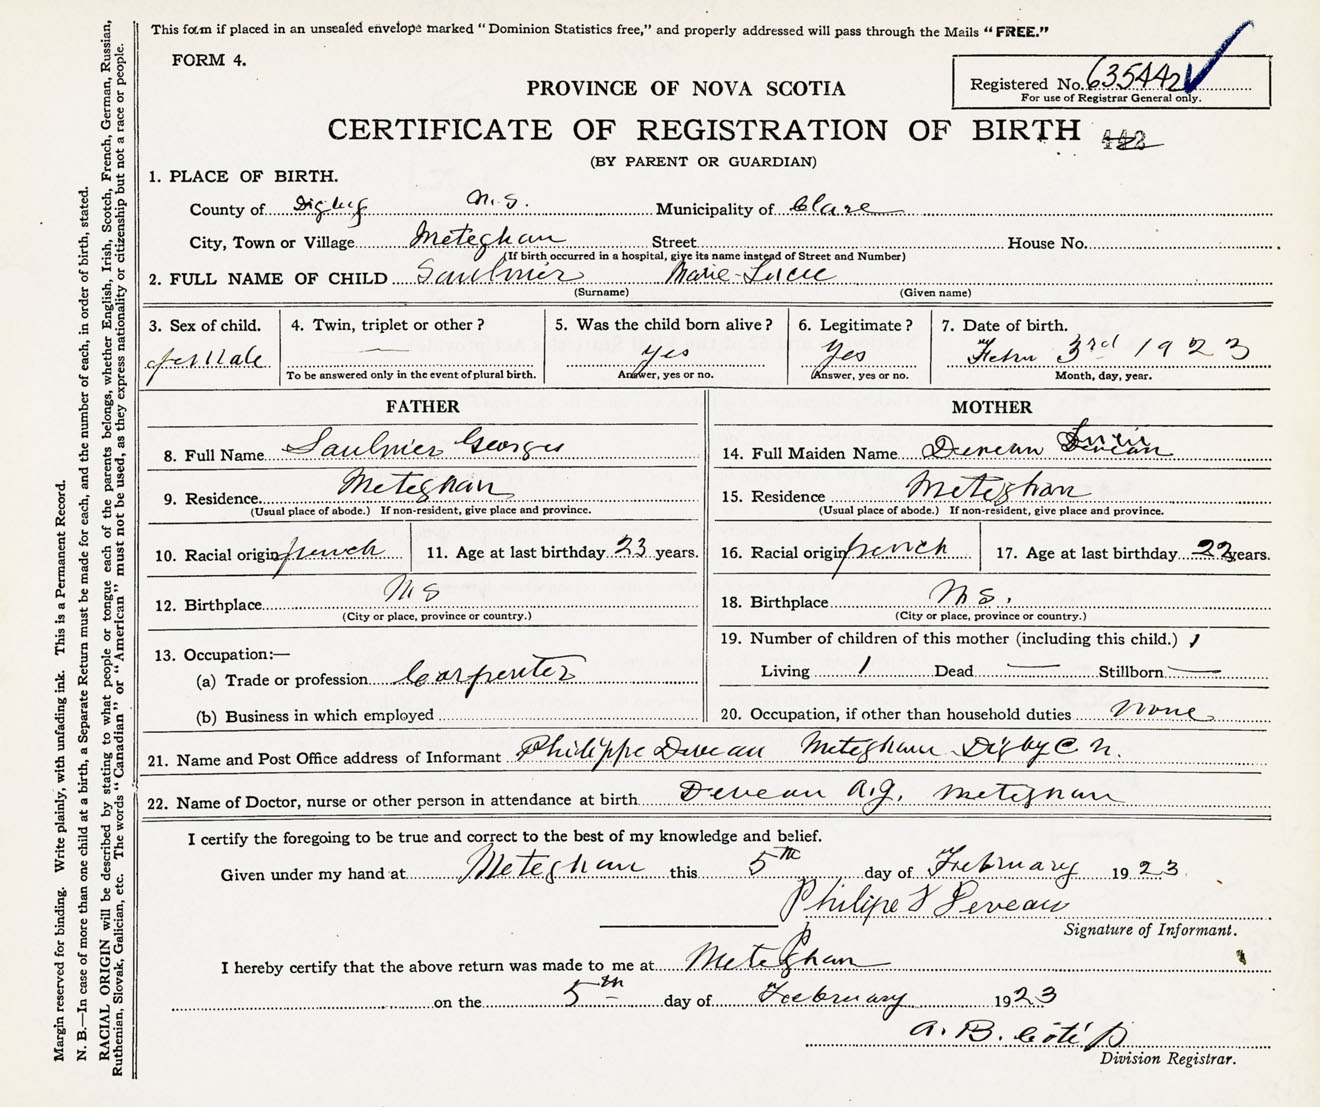 This form if placed in an unsealed envelope marked "Dominion Statistics free," and properly addressed will pass through the Mails "FREE."
FORM 4.
Registered No. 635442
For use of Registrar General only.
PROVINCE OF NOVA SCOTIA
CERTIFICATE OF REGISTRATION OF BIRTH
(BY PARENT OR GUARDIAN)
1. PLACE OF BIRTH.
County of Digby N.S. Municipality of Clare
City, Town or Village Meteghan Street House No.
(If birth occurred in a hospital, give its name instead of Street and Number)
2. FULL NAME OF CHILD Saulnier Marie-Lucie
(Surname) (Given name)
3. Sex of child. 4. Twin, triplet or other? 5. Was the child born alive? 6. Legitimate? 7. Date of birth.
female — yes yes Febru 3rd 1923
To be answered only in the event of plural birth. Answer, yes or no. Answer, yes or no. Month, day, year.
FATHER MOTHER
8. Full Name Saulnier Georges 14. Full Maiden Name Deveau
9. Residence Meteghan 15. Residence Meteghan
(Usual place of abode.) If non-resident, give place and province. (Usual place of abode.) If non-resident, give place and province.
10. Racial origin french 11. Age at last birthday 23 years. 16. Racial origin french 17. Age at last birthday 22 years.
12. Birthplace N S 18. Birthplace N S.
(City or place, province or country.) (City or place, province or country.)
19. Number of children of this mother (including this child.) 1
13. Occupation:—
Living 1 Dead — Stillborn —
(a) Trade or profession Carpenter
(b) Business in which employed 20. Occupation, if other than household duties none
21. Name and Post Office address of Informant Philippe Deveau Meteghan Digby C N.
22. Name of Doctor, nurse or other person in attendance at birth Deveau A.J. Meteghan
I certify the foregoing to be true and correct to the best of my knowledge and belief.
Given under my hand at Meteghan this 5th day of February 1923
Philipe Deveau
Signature of Informant.
I hereby certify that the above return was made to me at Meteghan
on the 5th day of February 1923
A. B. Coté
Division Registrar.
Margin reserved for binding. Write plainly, with unfading ink. This is a Permanent Record.
N. B.—In case of more than one child at a birth, a Separate Return must be made for each, and the number of each, in order of birth, stated.
RACIAL ORIGIN will be described by stating to what people or tongue each of the parents belongs, whether English, Irish, Scotch, French, German, Russian,
Ruthenian, Slovak, Galician, etc. The words "Canadian" or "American" must not be used, as they express nationality or citizenship but not a race or people.